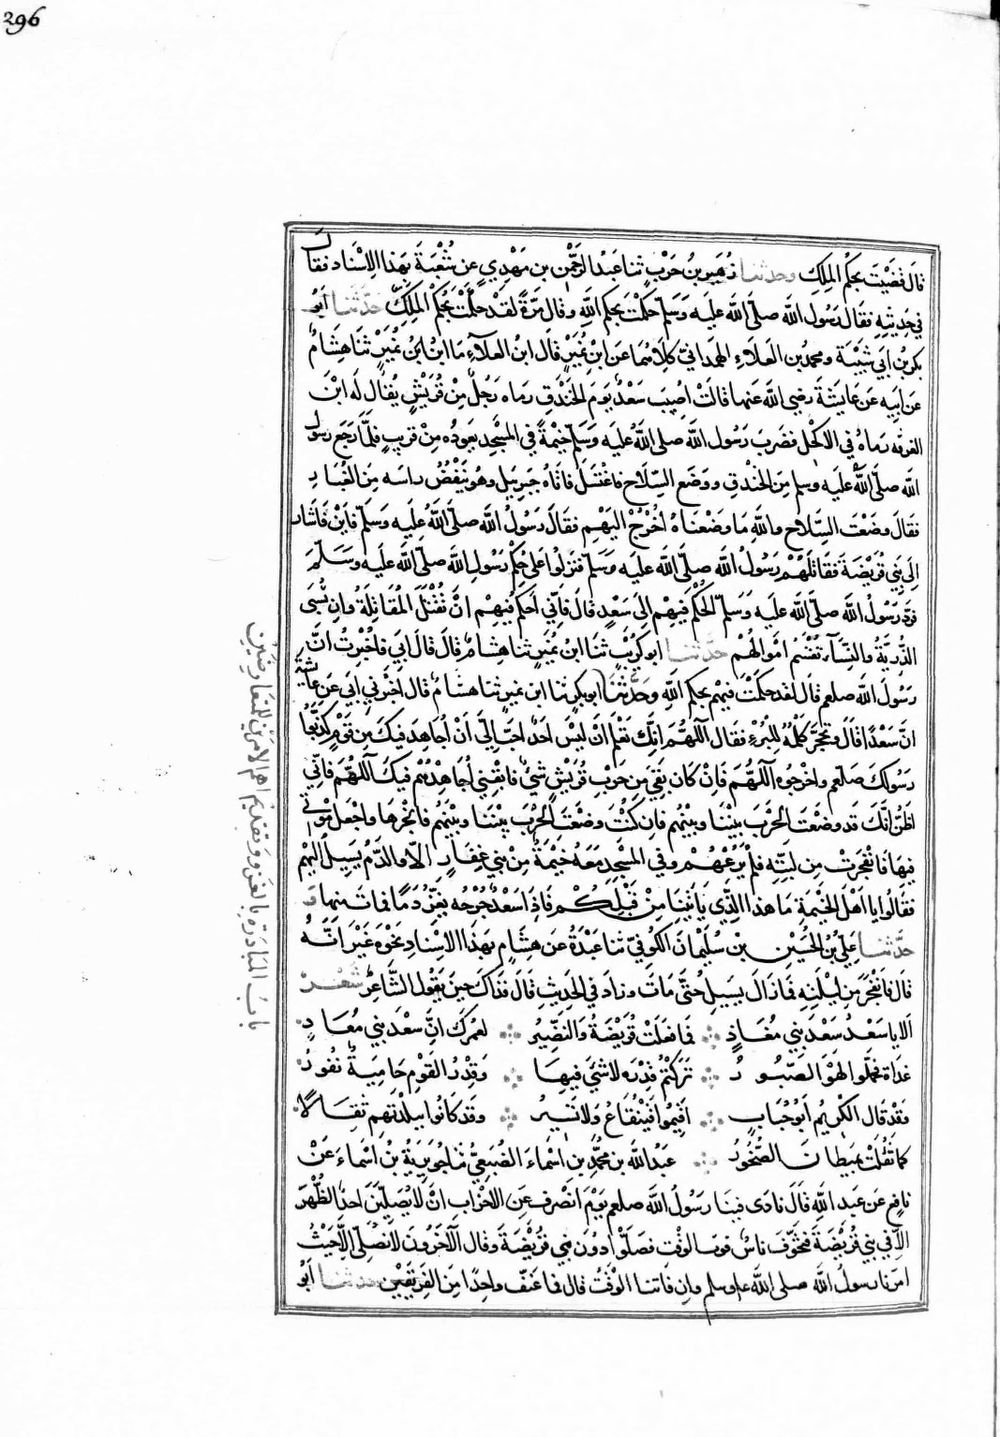 296
قال قضيت بحكم الملك وحدثنا زهير بن حرب ثنا عبد الرحمن بن مهدي عن شعبة بهذا الاسناد فقال
في حديثه فقال رسول الله صلى الله عليه وسلم حكمت بحكم الله وقال مرة لقد حكمت بحكم الملك حدثنا ابو
بكر بن ابي شيبة ومحمد بن العلاء الهمداني كلاهما عن ابن نمير قال ابن العلاء ما ابن نمير ثنا هشام
عن ابيه عن عايشة رضي الله عنها قالت اصيب سعد يوم الخندق رماه رجل من قريش يقال له ابن
العرقه رماه في الاكحل فضرب رسول الله صلى الله عليه وسلم خيمة في المسجد يعوده من قريب فلما رجع رسول
الله صلى الله عليه وسلم من الخندق ووضع السلاح فاغتسل فاتاه جبريل وهو ينفض راسه من الغبار
فقال وضعت السلاح والله ما وضعناه اخرج اليهم فقال رسول الله صلى الله عليه وسلم فاين فاشار
الى بني قريضة فقاتلهم رسول الله صلى الله عليه وسلم فنزلوا على حكم رسول الله صلى الله عليه وسلم
فرد رسول الله صلى الله عليه وسلم الحكم فيهم الى سعد قال فاني احكم فيهم ان تقتل المقاتلة وان تسبى
الذرية والنساء تقسم اموالهم حدثنا ابو كريب ثنا ابن نمير ثنا هشام قال قال ابي فاخبرت ان
رسول الله صلعم قال لقد حكمت فيهم بحكم الله وحدثنا ابو كريب ثنا ابن نمير ثنا هشام قال اخبرني ابي عن عايشة
ان سعدا قال وتحجر كلمه للبرء فقال اللهم انك تعلم ان ليس احد احب الي ان اجاهد فيك من قوم كذبوا
رسولك صلعم واخرجوه اللهم فان كان بقي من حرب قريش شيء فابقني اجاهدهم فيك اللهم فاني
اظن انك قد وضعت الحرب بيننا وبينهم فان كنت وضعت الحرب بيننا وبينهم فانجرها واجعل موتي
فيها فانفجرت من لبته فلم يرعهم وفي المسجد معه خيمة من بني غفار الا والدم يسيل اليهم
فقالوا يا اهل الخيمة ما هذا الذي ياتينا من قبلكم فاذا سعد جرحه يغذ دما فمات منها و
حدثنا علي بن الحسين بن سليمان الكوفي ثنا عبدة عن هشام بهذا الاسناد نحوه غير انه
قال فانفجر من ليلته فما زال يسيل حتى مات وزاد في الحديث قال فذاك حين يقول الشاعر شعر
الا يا سعد سعد بني معاذ فما فعلت قريضة والنضير لعمرك ان سعد بني معاذ
غداة تحملوا لهو الصبور تركتم قدركم لا شيء فيها وقدر القوم حامية تفور
وقد قال الكريم ابو حباب اقيموا قينقاع ولا تسير وقد كانوا ببلدتهم ثقالا
كما ثقلت بميطان الصخور عبد الله بن محمد بن اسماء الضبعي ثنا جويرية بن اسماء عن
نافع عن عبد الله قال نادى فينا رسول الله صلعم يوم انصرف عن الاحزاب ان لا يصلين احد الظهر
الا في بني قريضة فتخوف ناس فوت الوقت فصلوا دون بني قريضة وقال الآخرون لا نصلي الا حيث
امرنا رسول الله صلى الله عليه وسلم وان فاتنا الوقت قال فما عنف واحدا من الفريقين حدثنا ابو
باب المبادرة بالغزو وتقديم اهم الامرين المتعارضين